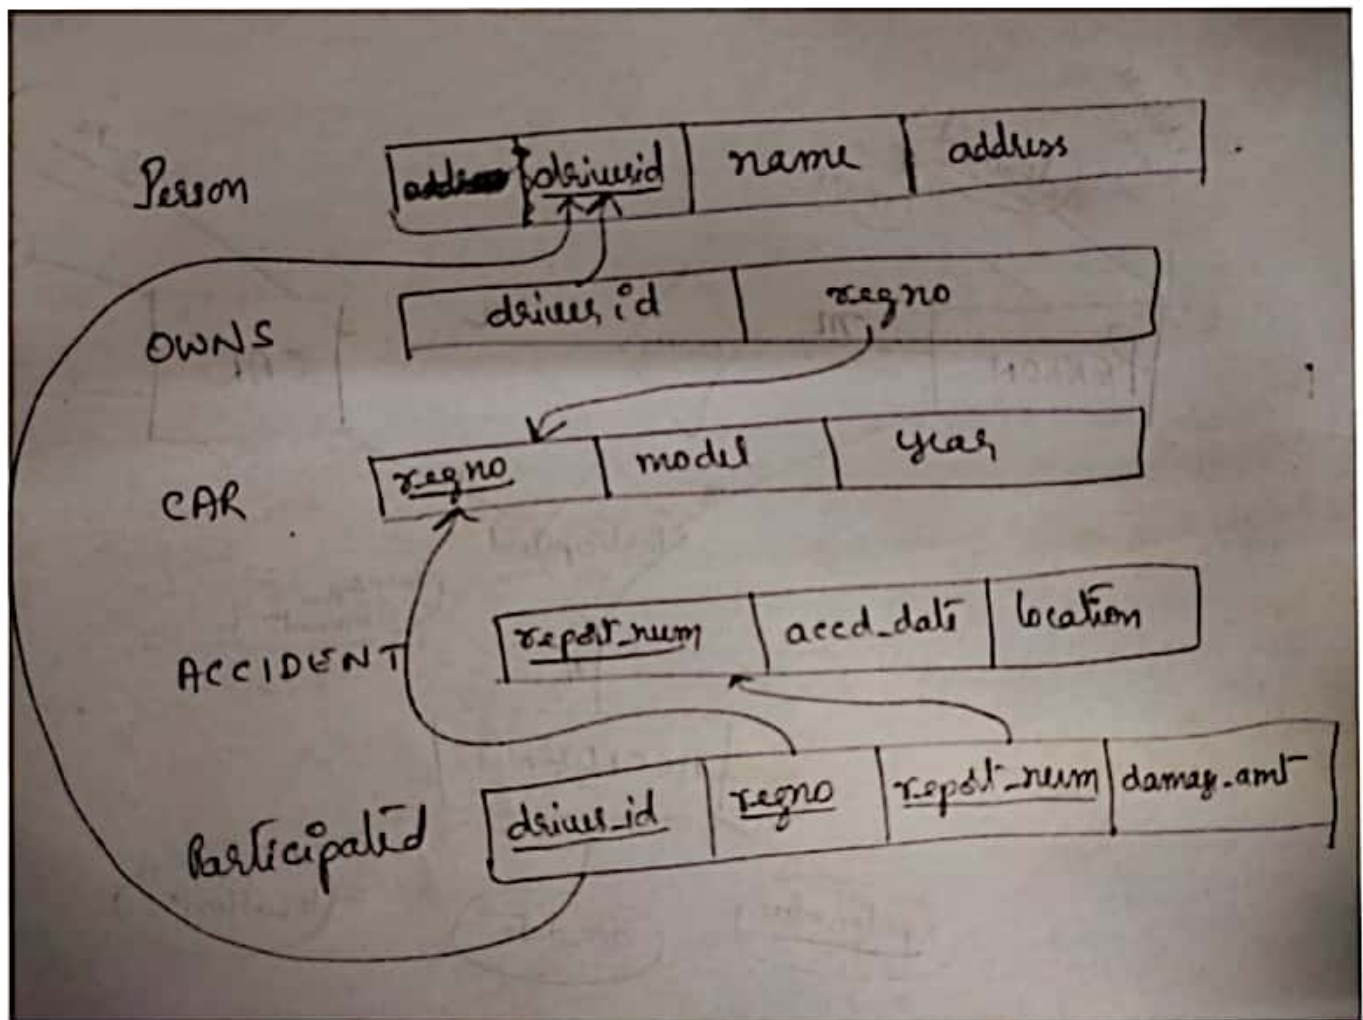 Person driverid name address
OWNS driver id regno
CAR regno model year
ACCIDENT report_num accd_date location
Participated driver_id regno report_num damag_amt